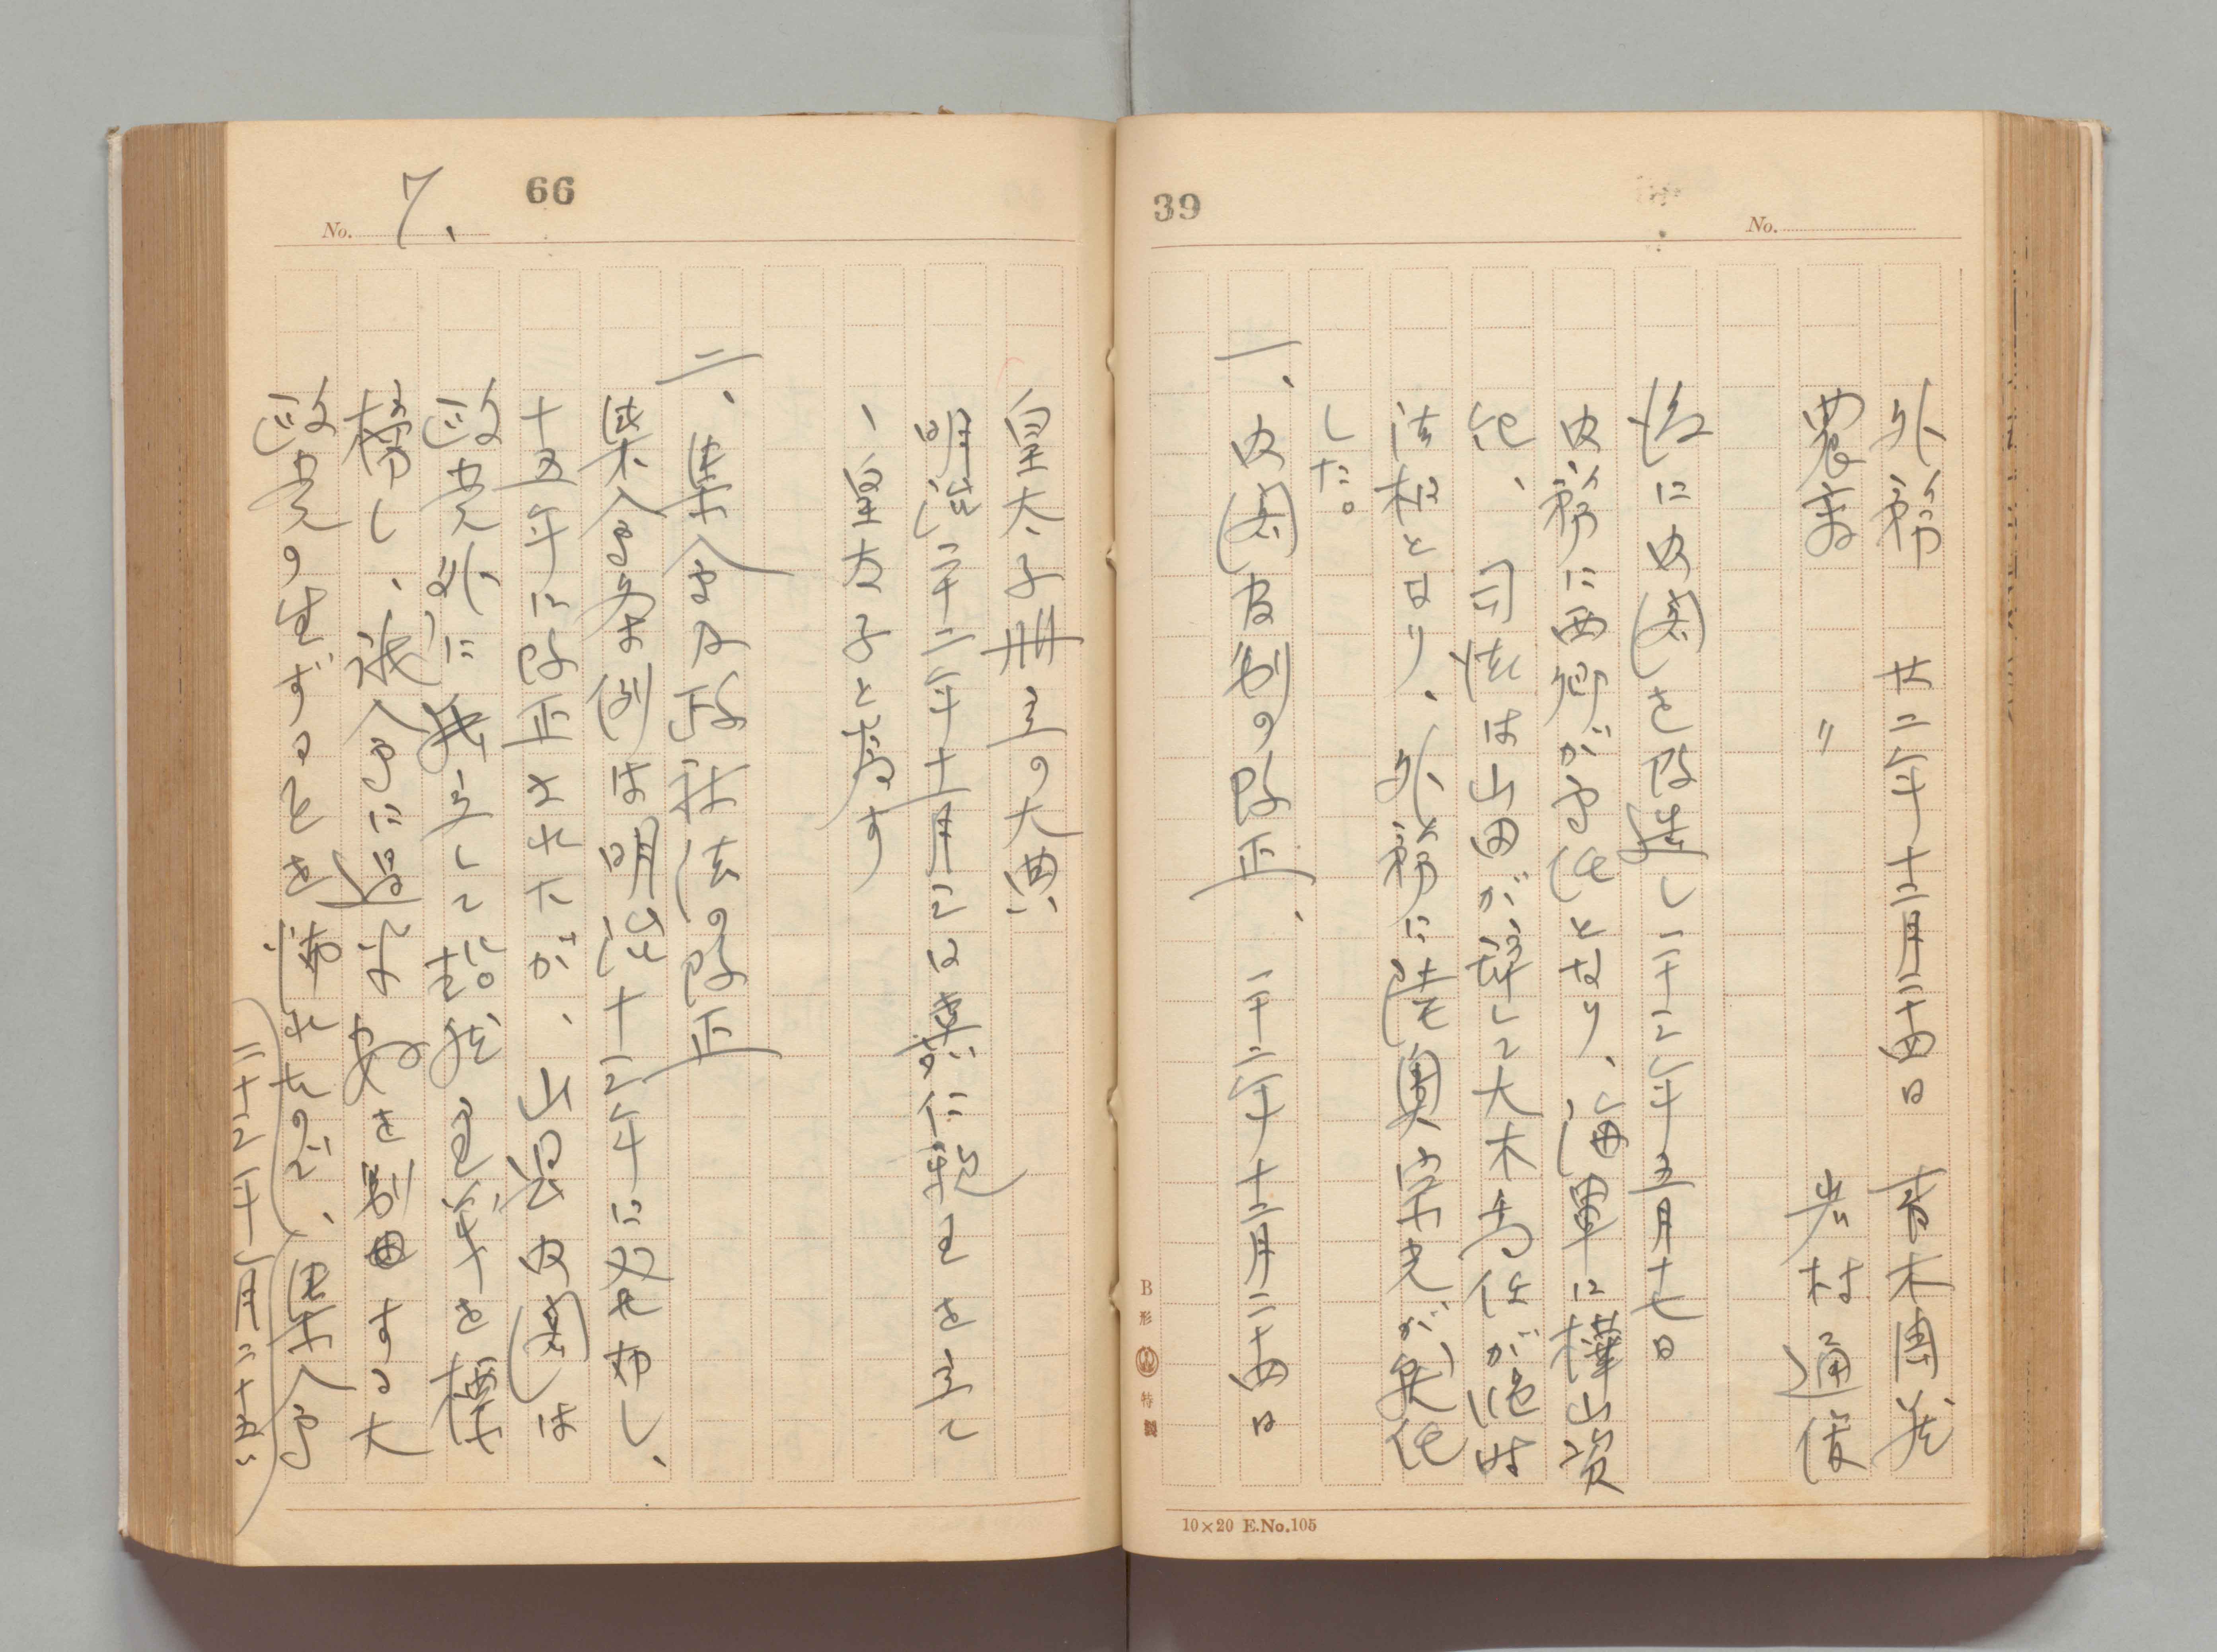 39
No.
外務　廿二年十二月二十四日　青木周蔵
農商　〃　岩村通俊
後に内閣を改造し二十三年五月十七日
内務に西郷が専任となり、海軍に樺山資
紀、司法は山田が辞して大木喬任が臨時
法相となり、外務に陸奥宗光が
した。
一、内閣官制の改正、二十二年十二月二十四日
B形 特製
10×20 E.No.105
66
No. 7.
皇太子冊立の大典
明治二十二年十一月には嘉仁親王を立て
皇太子と為す
二、集会及政社法の改正
集会条例は明治十三年に発布し、
十五年に改正されたが、山県内閣は
政党外に立して超然主義を標
榜し、議会には
政党の生ずることを怖れたので、集会
二十三年七月二十五日